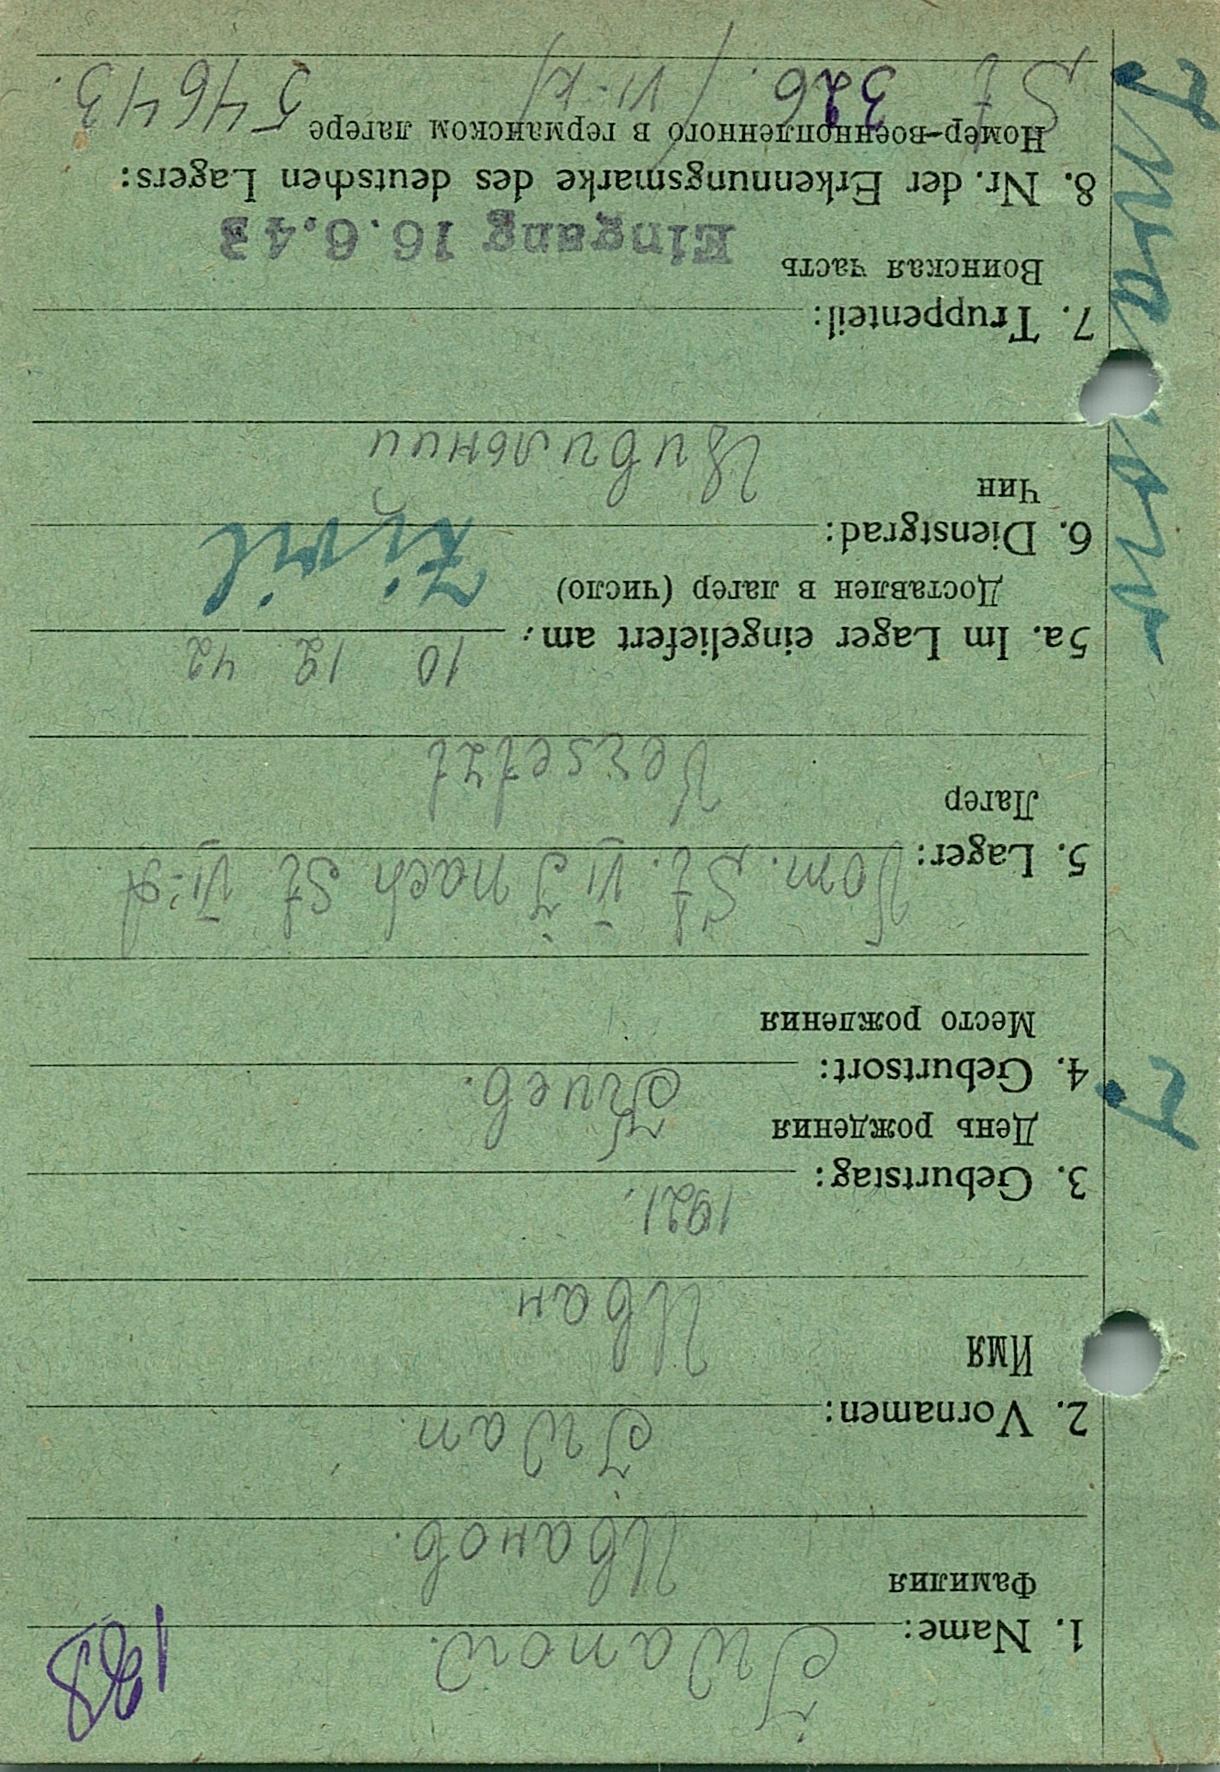 128
Iwanow.
1. Name:
Фамилия
Иванов.
Iwan.
2. Vornamen:
Имя
Иван
1921.
3. Geburtstag:
День рождения
Киев.
4. Geburtsort:
Место рождения
Vom. St. VI J nach St VI-A
5. Lager:
Лагер
Versetzt
10 12 42
5a. Im Lager eingeliefert am:
Доставлен в лагер (число)
Zivil
6. Dienstgrad:
Чин
Цивильнии
7. Truppenteil:
Воинская часть
Eingang 16.6.43
8. Nr. der Erkennungsmarke des deutschen Lagers:
Номер-военнопленного в германском лагере
St 326 / VI-K / 54643.
J. Iwanow